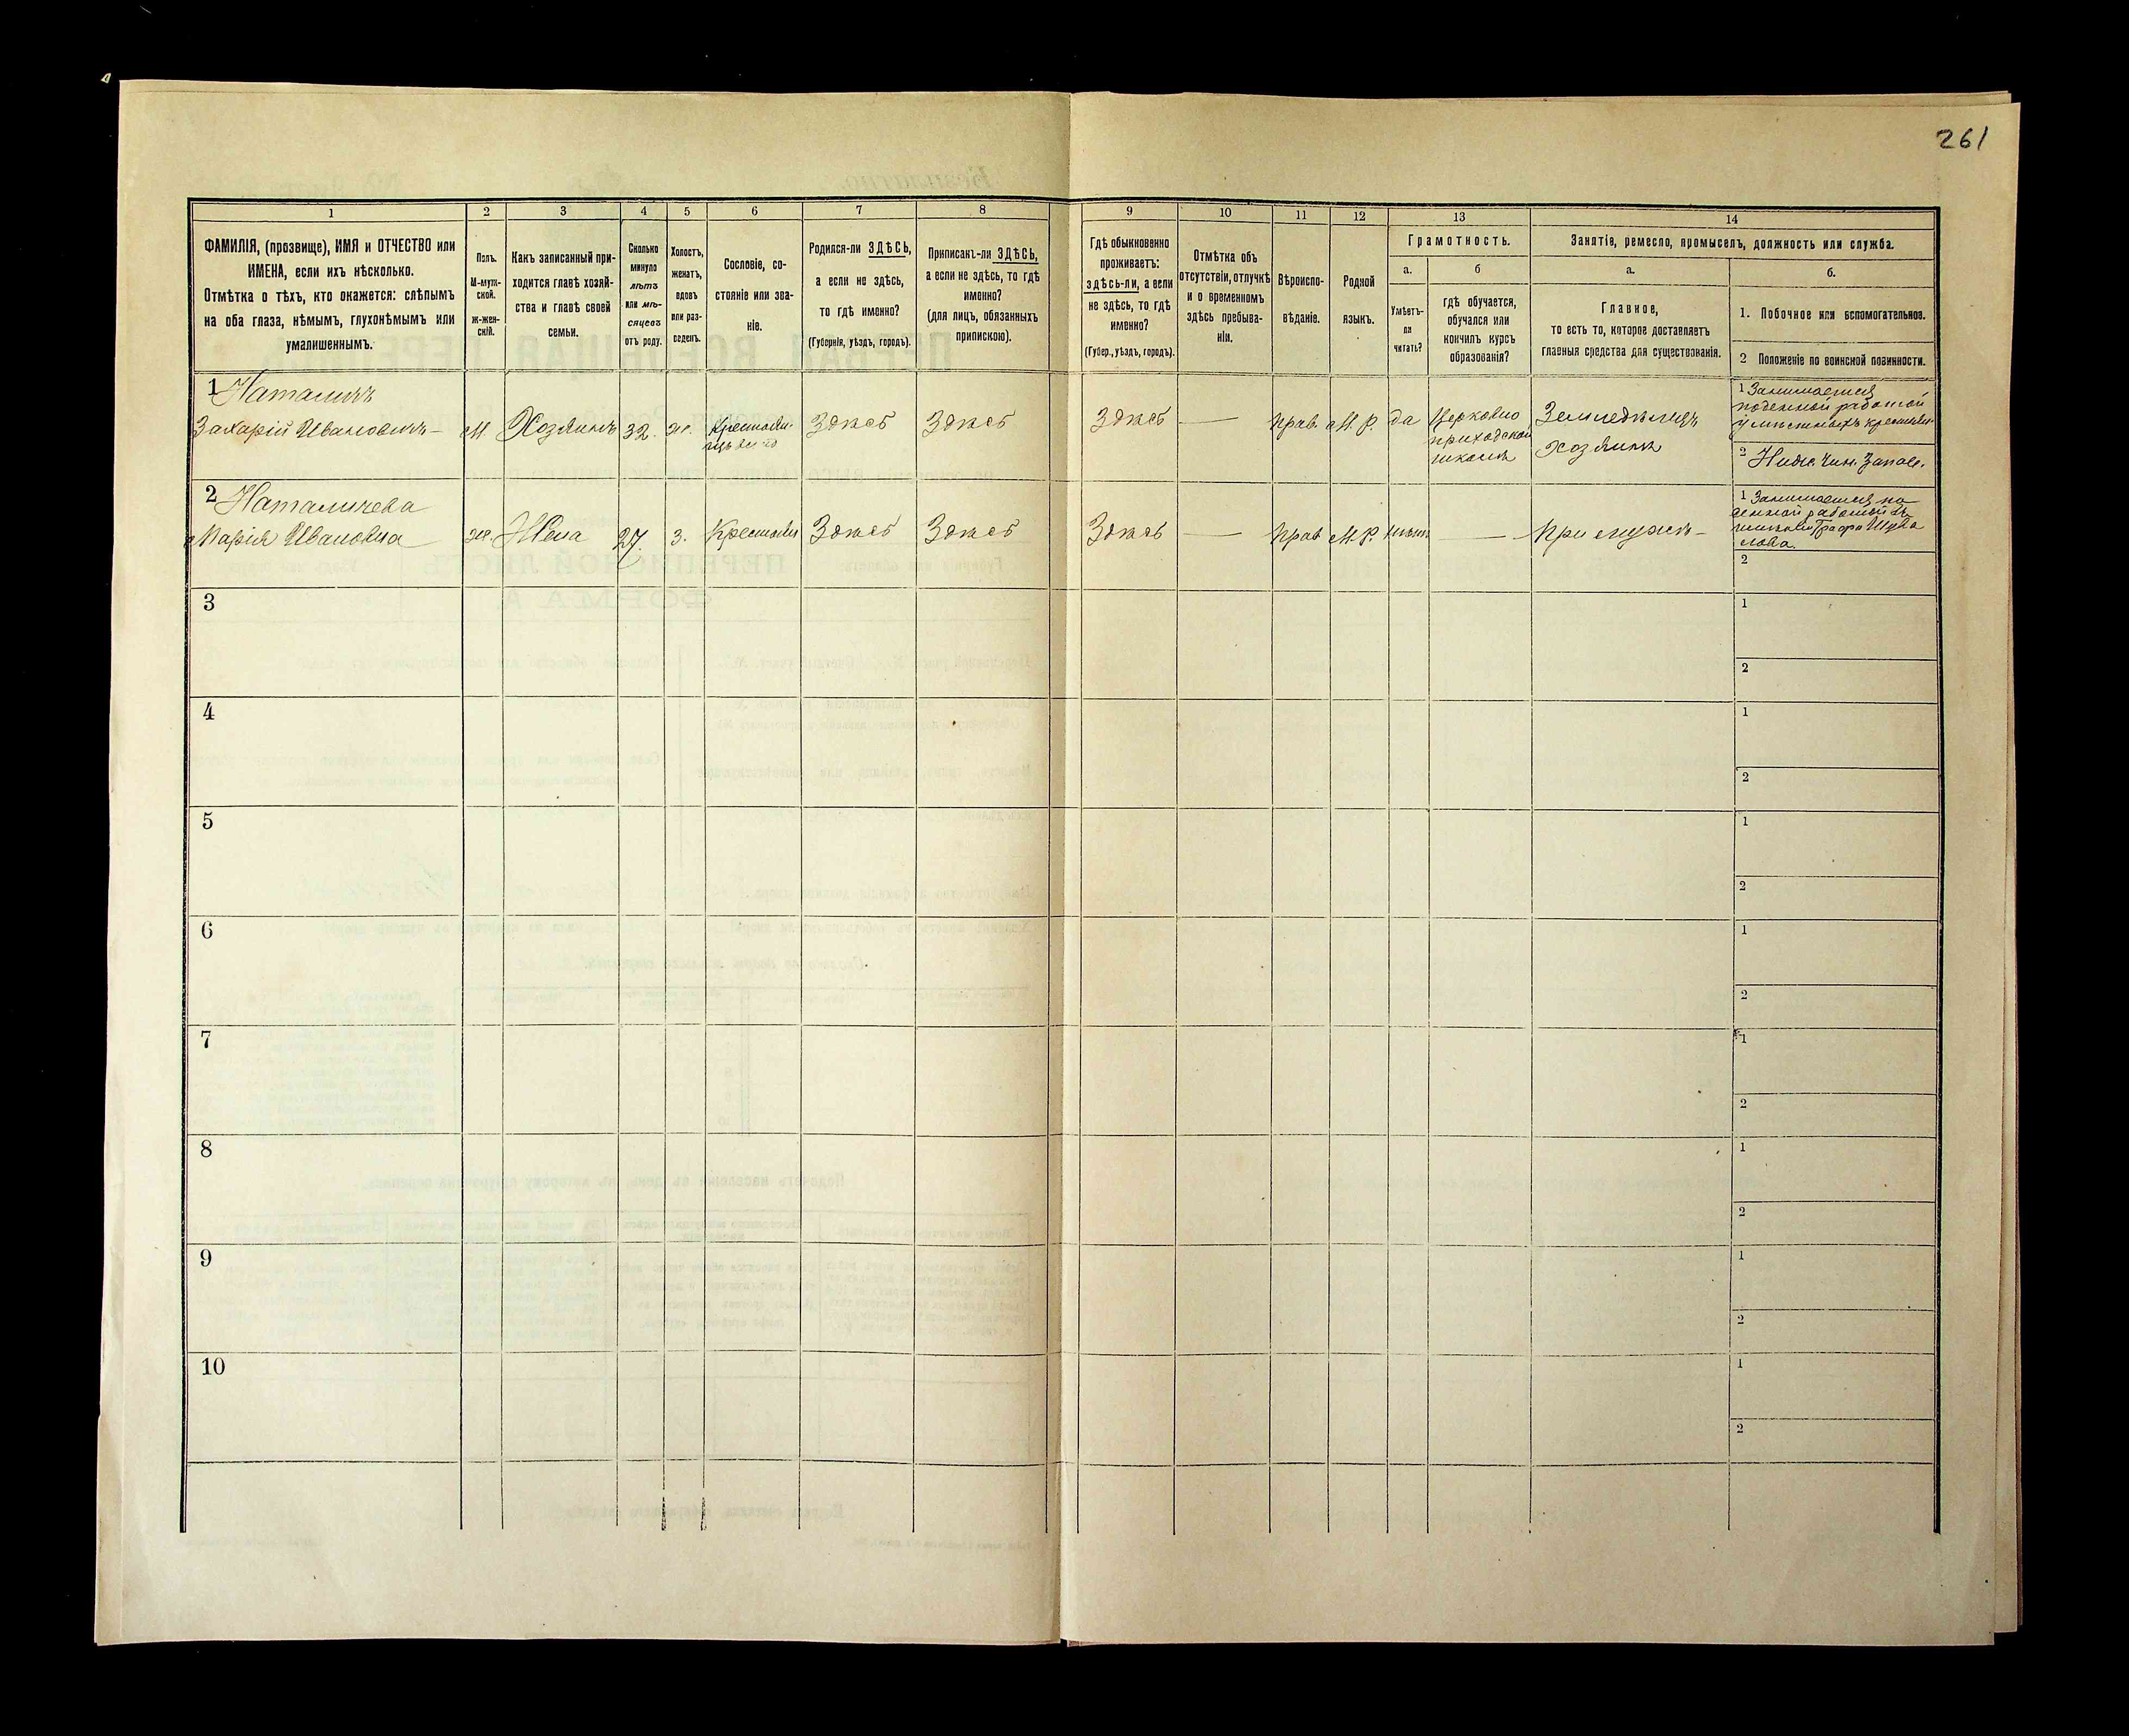 261
1 2 3 4 5 6 7 8 9 10 11 12 13 14
ФАМИЛІЯ, (прозвище), ИМЯ и ОТЧЕСТВО или
ИМЕНА, если ихъ нѣсколько.
Отмѣтка о тѣхъ, кто окажется: слѣпымъ
на оба глаза, нѣмымъ, глухонѣмымъ или
умалишеннымъ.
Полъ.
М-муж-
ской.
Ж-жен-
скій.
Какъ записанный при-
ходится главѣ хозяй-
ства и главѣ своей
семьи.
Сколько
минуло
лѣтъ
или мѣ-
сяцевъ
отъ роду.
Холостъ,
женатъ,
вдовъ
или раз-
веденъ.
Сословіе, со-
стояніе или зва-
ніе.
Родился-ли ЗДѢСЬ,
а если не здѣсь,
то гдѣ именно?
(Губернія, уѣздъ, городъ).
Приписанъ-ли ЗДѢСЬ,
а если не здѣсь, то гдѣ
именно?
(для лицъ, обязанныхъ
припискою).
Гдѣ обыкновенно
проживаетъ:
здѣсь-ли, а если
не здѣсь, то гдѣ
именно?
(Губер., уѣздъ, городъ).
Отмѣтка объ
отсутствіи, отлучкѣ
и о временномъ
здѣсь пребыва-
ніи.
Вѣроиспо-
вѣданіе.
Родной
языкъ.
Грамотность.
а.
Умѣетъ-
ли
читать?
б
гдѣ обучается,
обучался или
кончилъ курсъ
образованія?
Занятіе, ремесло, промыселъ, должность или служба.
а.
Главное,
то есть то, которое доставляетъ
главныя средства для существованія.
б.
1. Побочное или вспомогательное.
2 Положеніе по воинской повинности.
1
Захарій Ивановичъ
М.
Хозяинъ
32.
ж.
Здѣсь
Здѣсь
Здѣсь
—
Прав.
М. Р.
да
Церковно
приходской
школѣ
Земледѣлецъ
Хозяинъ
1 Занимается
поденной работой
2 Нижн. Чин. Запас.
2
Марія Ивановна
ж.
Жена
27.
з.
Крестьян
Здѣсь
Здѣсь
Здѣсь
—
Прав
М. Р.
нѣтъ
—
При мужѣ
1 Занимается по
денной работой въ
Графа Шува
лова.
2
3
1
2
4
1
2
5
1
2
6
1
2
7
1
2
8
1
2
9
1
2
10
1
2